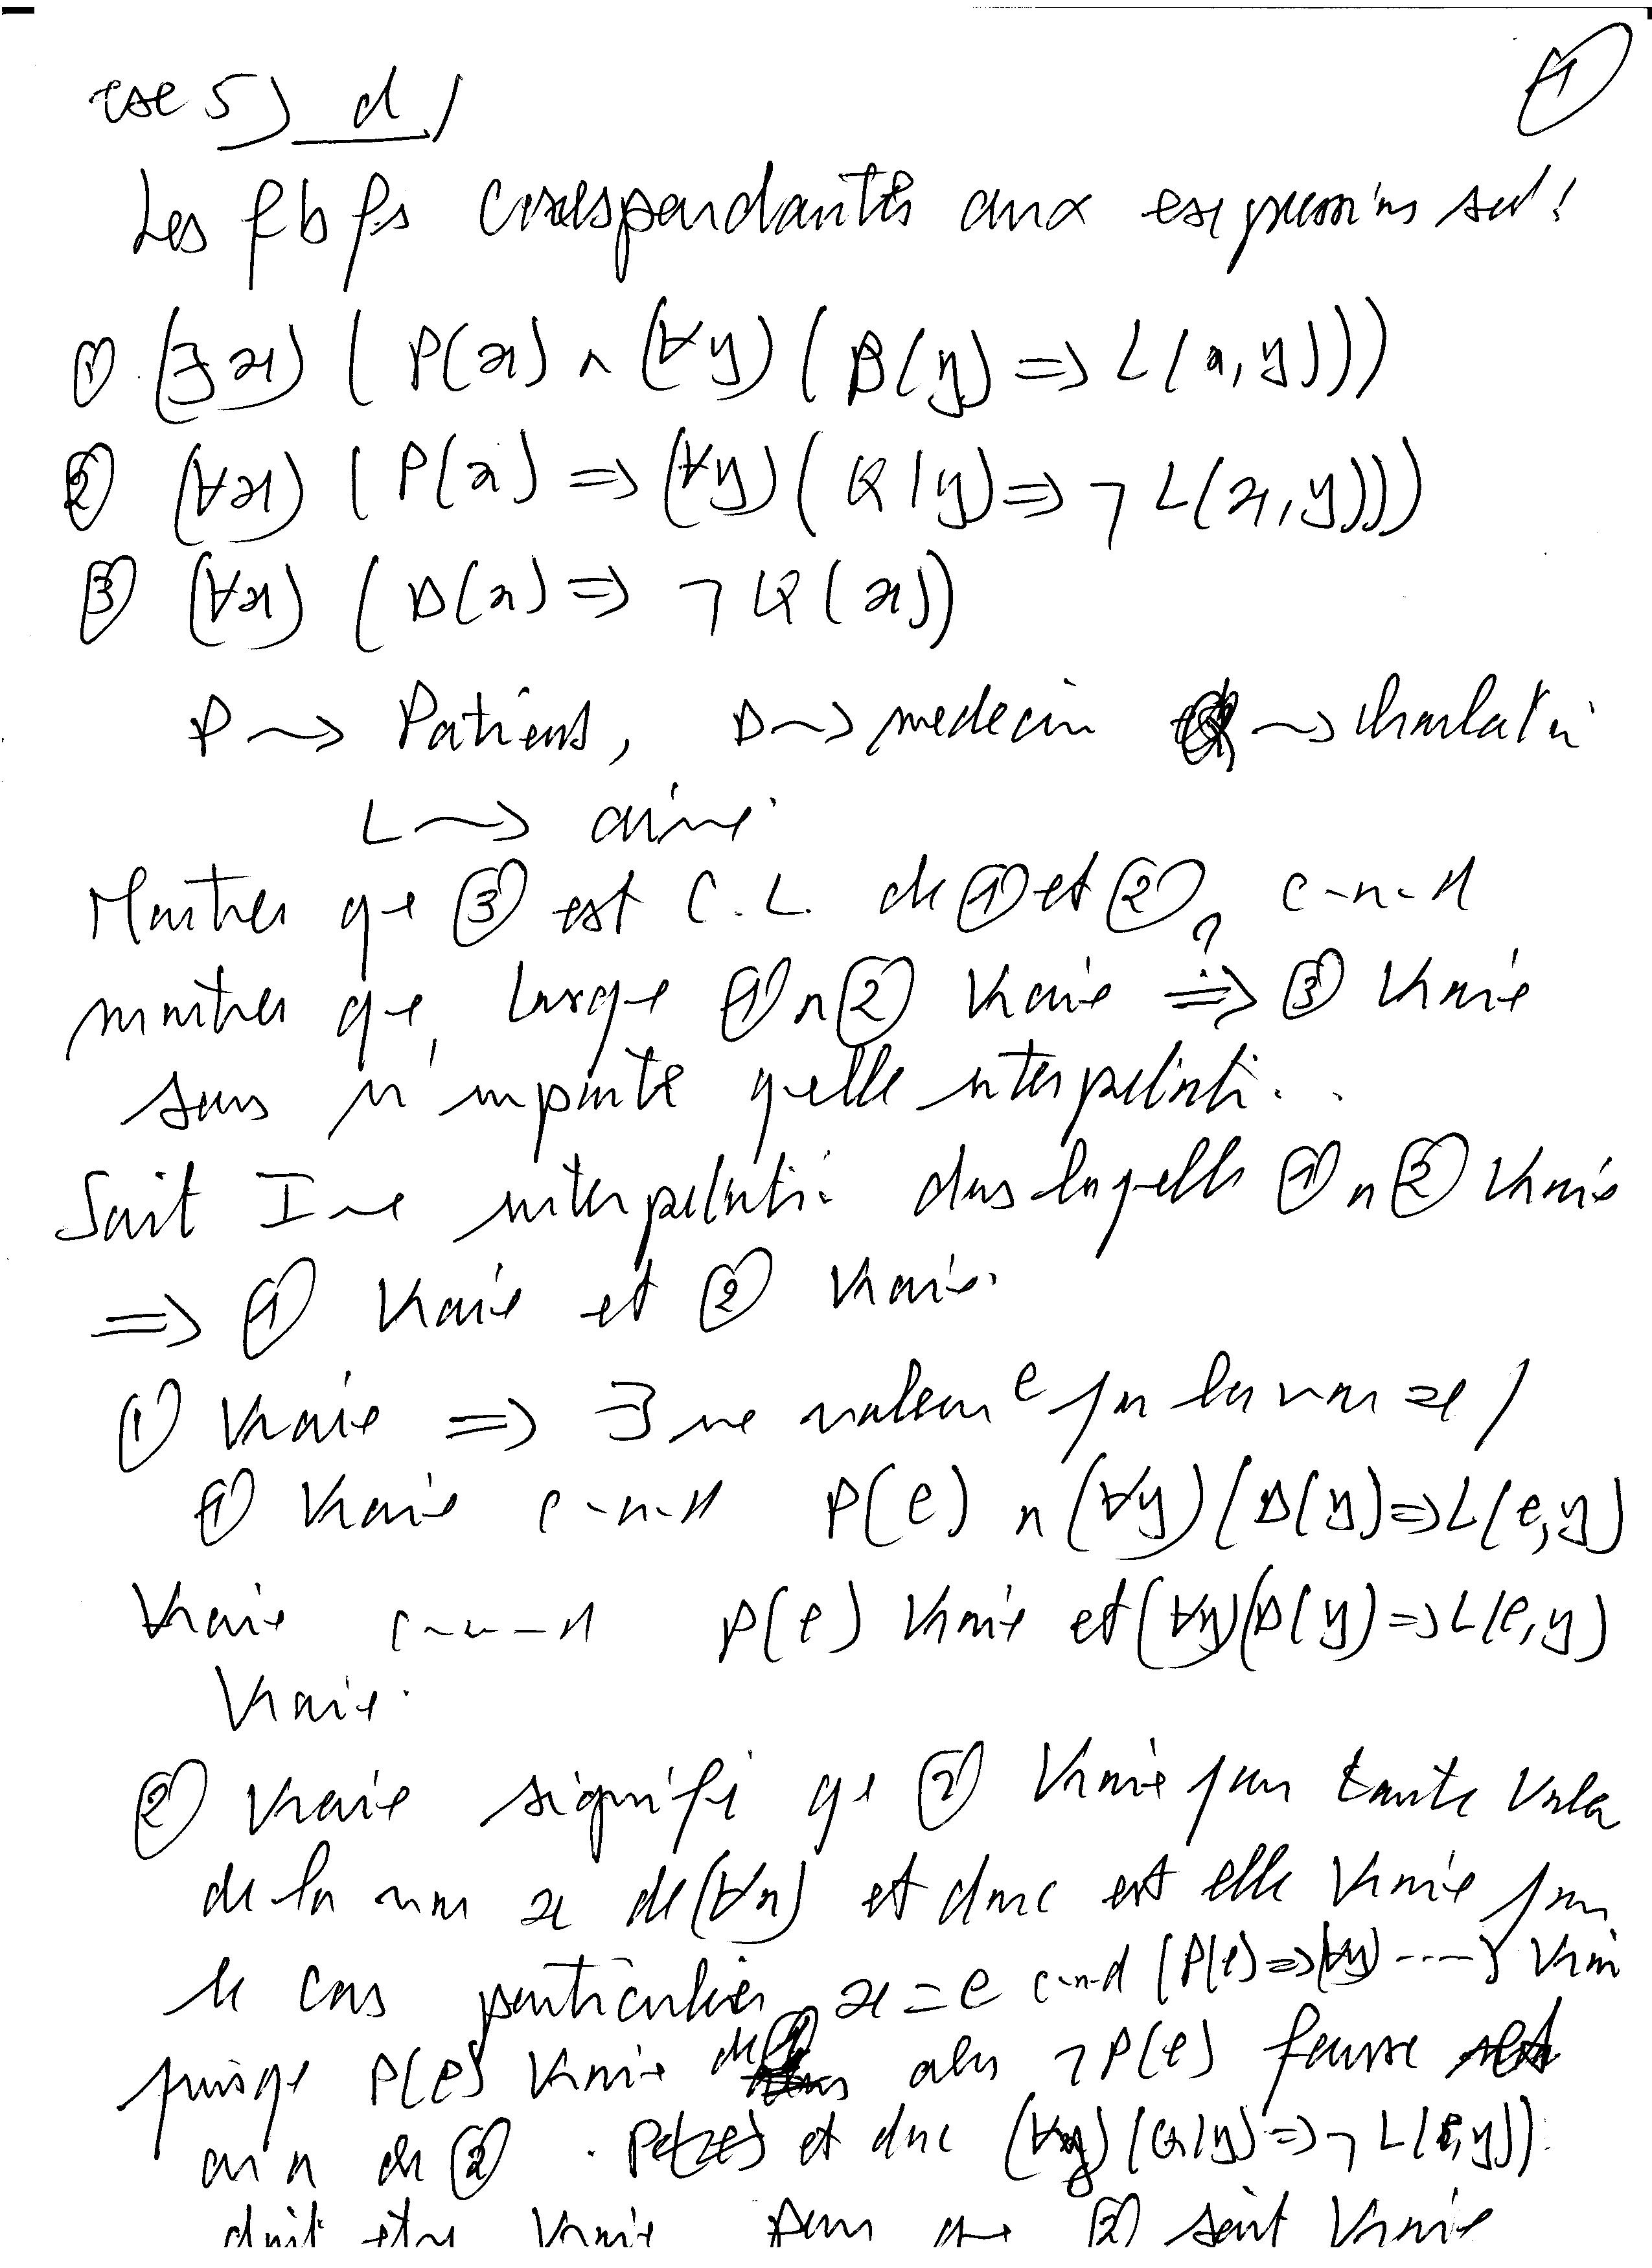 exe 5) d/ ①
Les fbfs correspondantes aux expressions sont :
① (∃x) ( P(x) ∧ (∀y) ( D(y) => L(x,y)))
② (∀x) ( P(x) => (∀y) ( Q(y) => ¬ L(x,y)))
③ (∀x) ( D(x) => ¬ Q(x))
P ~> Patient, D ~> medecin Q ~> charlatan
L ~> aime
Montrer que ③ est C.L. de ① et ②, c-a-d
montrer que, lorsque ① ∧ ② Vraie => ③ Vraie
sous n'importe quelle interpretation.
Soit I une interpretation dans laquelle ① ∧ ② Vraie
=> ① Vraie et ② Vraie.
① Vraie => ∃ une valeur e pour la var x /
① Vraie c-a-d P(e) ∧ (∀y) (D(y) => L(e,y)
Vraie c-a-d P(e) Vraie et (∀y)(D(y) => L(e,y)
Vraie.
② Vraie signifie que ② Vraie pour toute valeur
de la var x de (∀x) et donc est elle Vraie pour
le cas particulier x = e c-a-d (P(e) => (∀y) ----) Vraie
puisque P(e) Vraie de ① alors ¬P(e) fausse
on a de ② . et donc (∀y) (Q(y) => ¬ L(e,y))
doit etre Vraie pour que ② soit Vraie